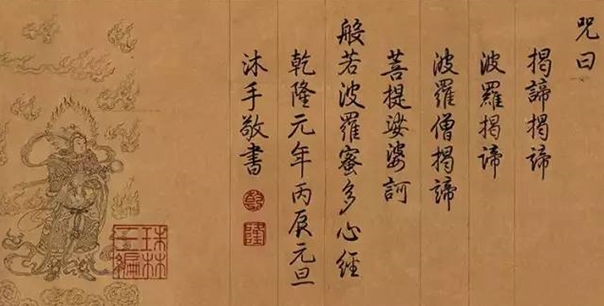 咒曰
揭諦揭諦
波羅揭諦
波羅僧揭諦
菩提娑婆訶
般若波羅蜜多心經
乾隆元年丙辰元旦
沐手敬書
乾
隆
珠林
三編